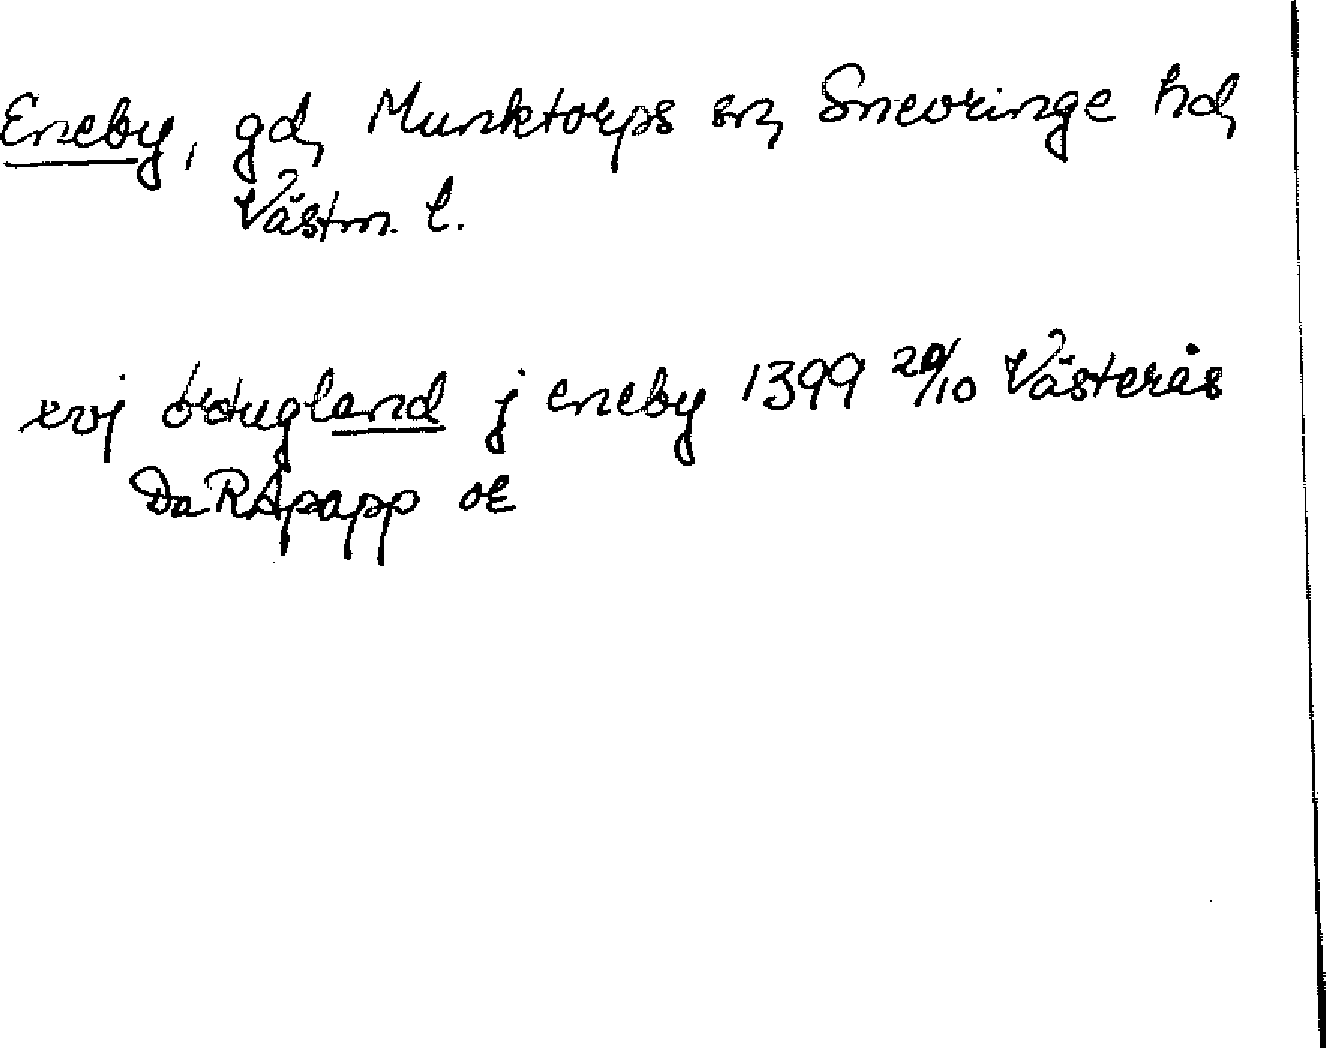 Eneby, gd, Munktorps sn, Snevringe hd,
Västm. l.
xvj örtugland j eneby 1399 20/10 Västerås
Da RApapp or